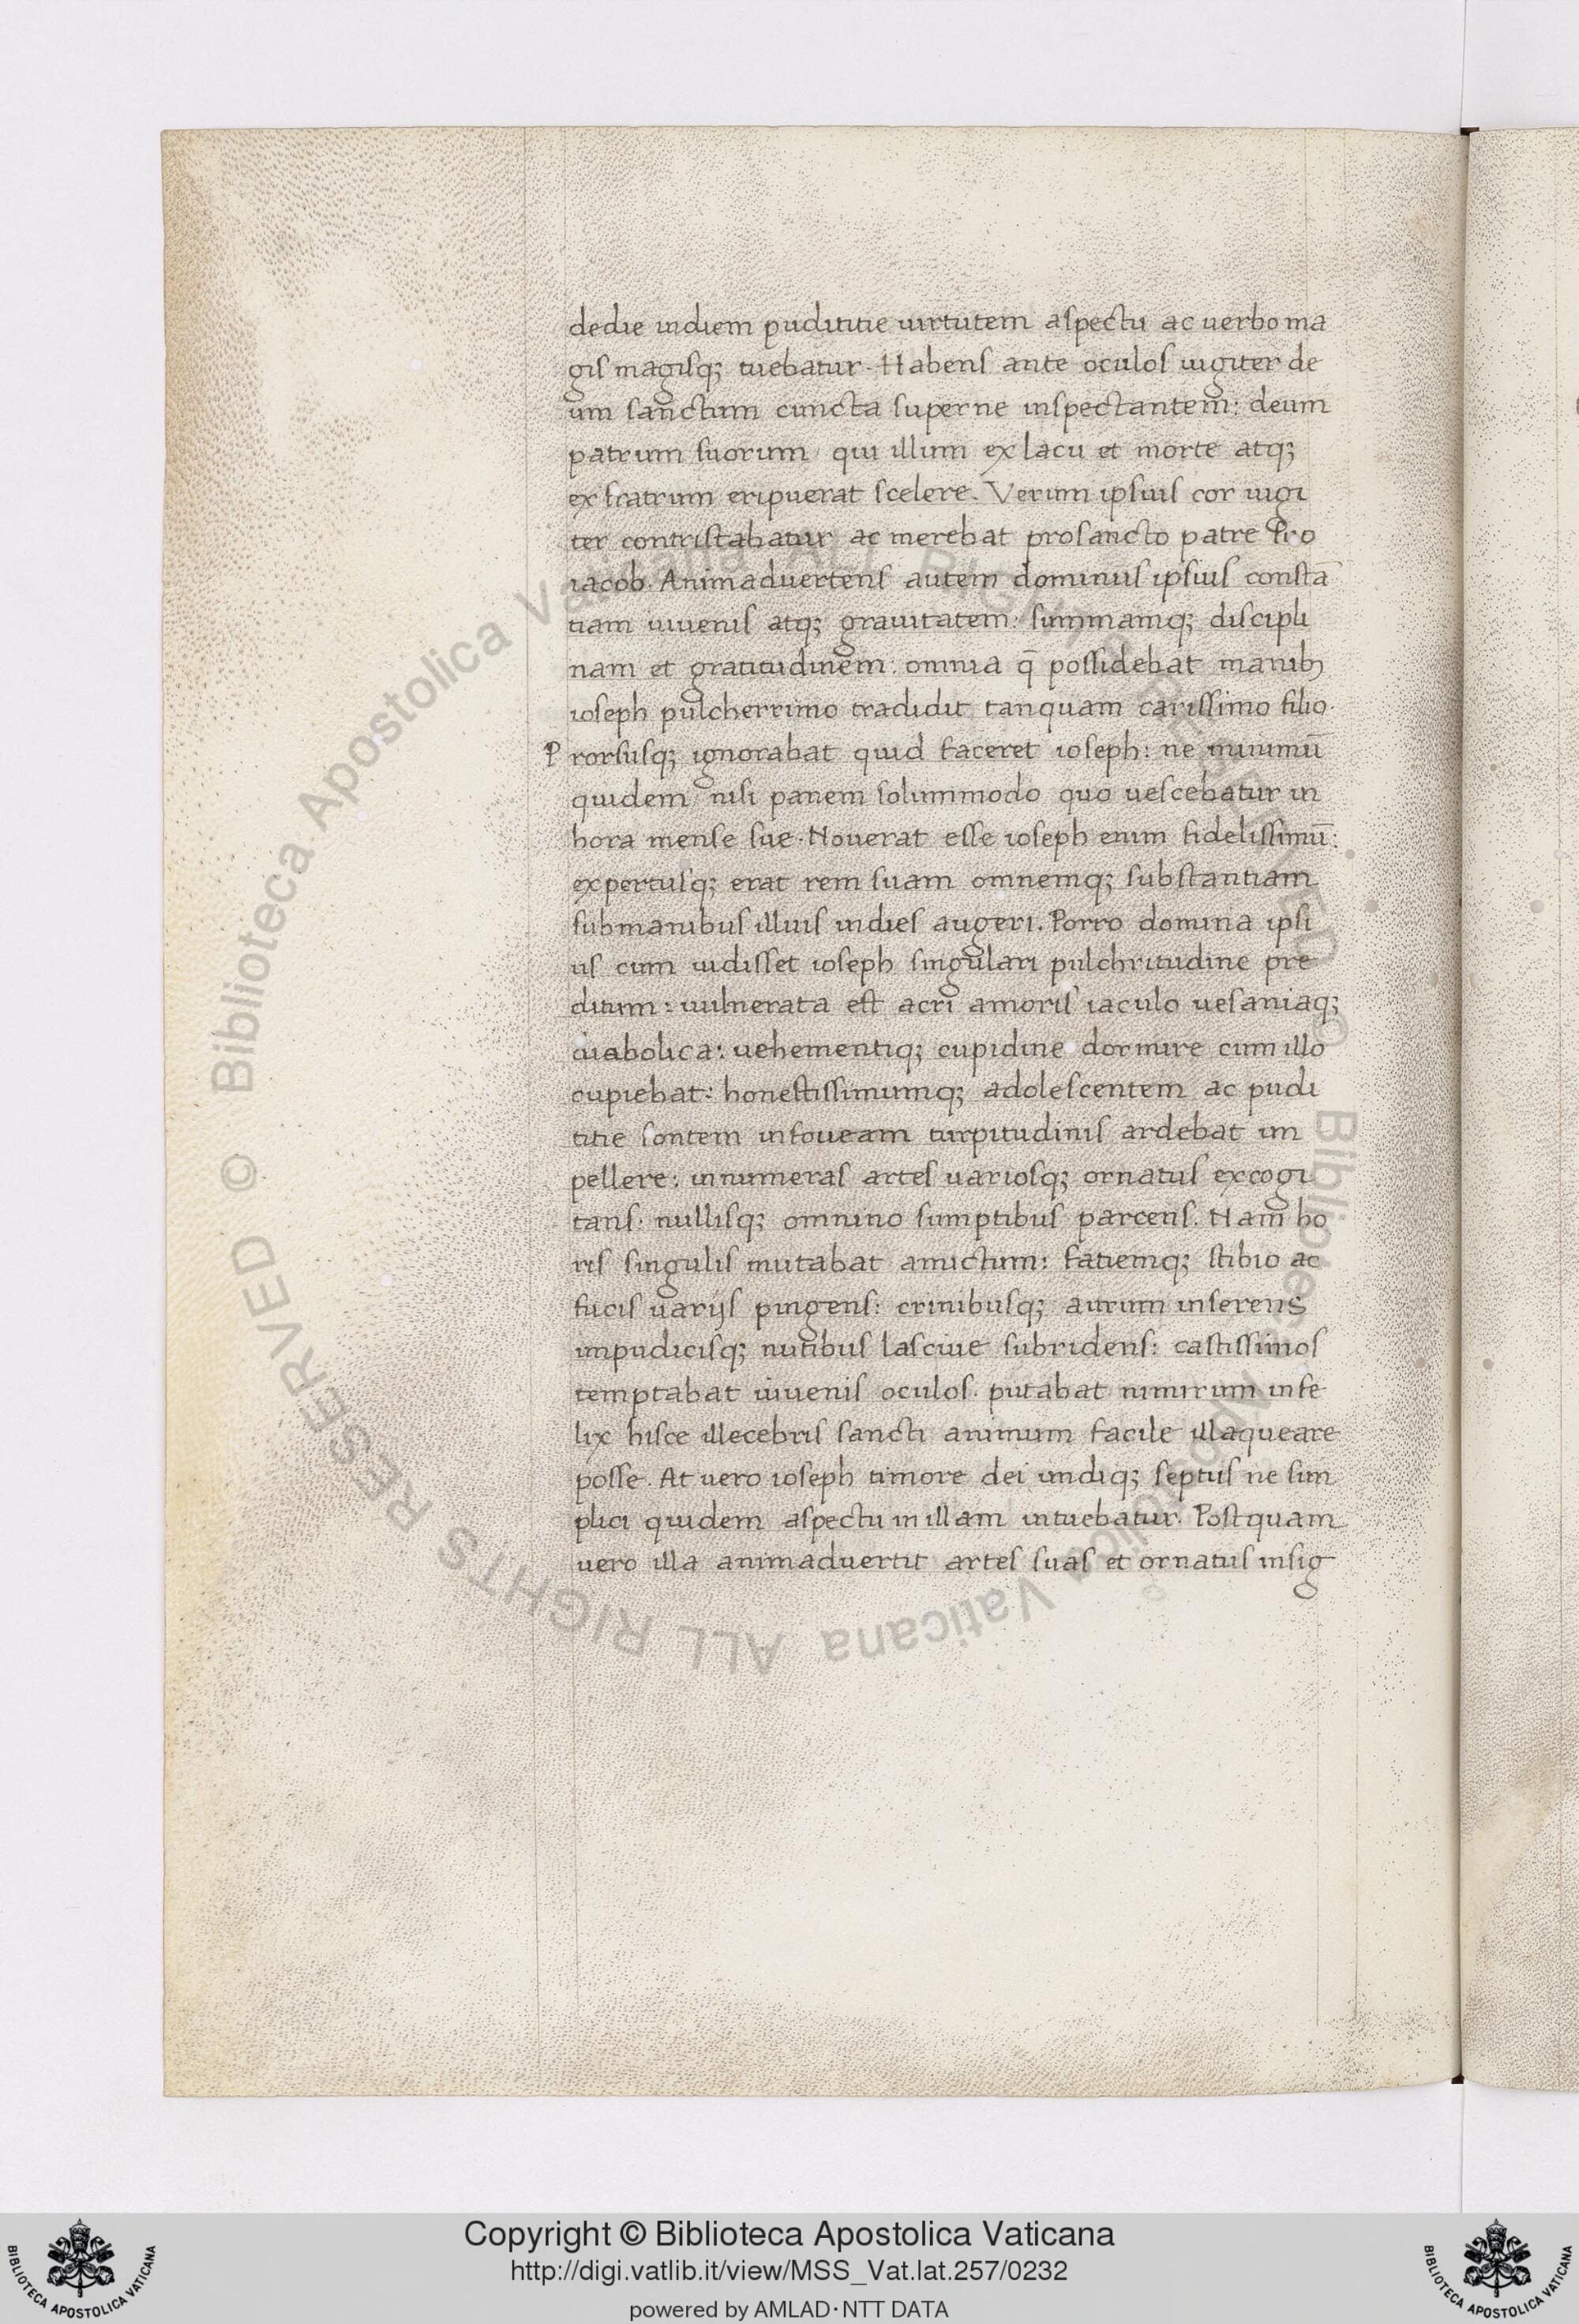 dedie indiem pudititie uirtutem aspectu ac uerbo ma
gis magisq; tuebatur. Habens ante oculos iugiter de
um sanctum cuncta superne inspectantem: deum
patrum suorum / qui illum ex lacu et morte atq;
ex fratrum eripuerat scelere. Verum ipsius cor iugi
ter contristabatur ac merebat prosancto patre suo
iacob. Animaduertens autem dominus ipsius consta
tiam iuuenis atq; grauitatem: summamq; discipli
nam et gratitudinem: omnia q̄ possidebat manibꝫ
ioseph pulcherrimo tradidit tanquam carissimo filio.
Prorsusq; ignorabat quid faceret ioseph: ne minimū
quidem / nisi panem solummodo quo uescebatur in
hora mense sue. Nouerat esse ioseph enim fidelissimū:
expertusq; erat rem suam omnemq; substantiam
submanibus illius indies augeri. Porro domina ipsi
us cum uidisset ioseph singulari pulchritudine pre
ditum: uulnerata est acri amoris iaculo uesaniaq;
diabolica: uehementiq; cupidine dormire cum illo
cupiebat: honestissimumq; adolescentem ac pudi
titie fontem infoueam turpitudinis ardebat im
pellere: innumeras artes uariosq; ornatus excogi
tans: nullisq; omnino sumptibus parcens. Nam ho
ris singulis mutabat amictum: fatiemq; stibio ac
fucis uarijs pingens: crinibusq; aurum inserens
impudicisq; nutibus lasciue subridens: castissimos
temptabat iuuenis oculos. putabat nimirum infe
lix hisce illecebris sancti animum facile illaqueare
posse. At uero ioseph timore dei undiq; septus ne sim
plici quidem aspectu in illam intuebatur. Postquam
uero illa animaduertit artes suas et ornatus insig
© Biblioteca Apostolica Vaticana ALL RIGHTS RESERVED © Biblioteca Apostolica Vaticana ALL RIGHTS RESERVED
Copyright © Biblioteca Apostolica Vaticana
http://digi.vatlib.it/view/MSS_Vat.lat.257/0232
powered by AMLAD·NTT DATA
BIBLIOTECA APOSTOLICA VATICANA
BIBLIOTECA APOSTOLICA VATICANA